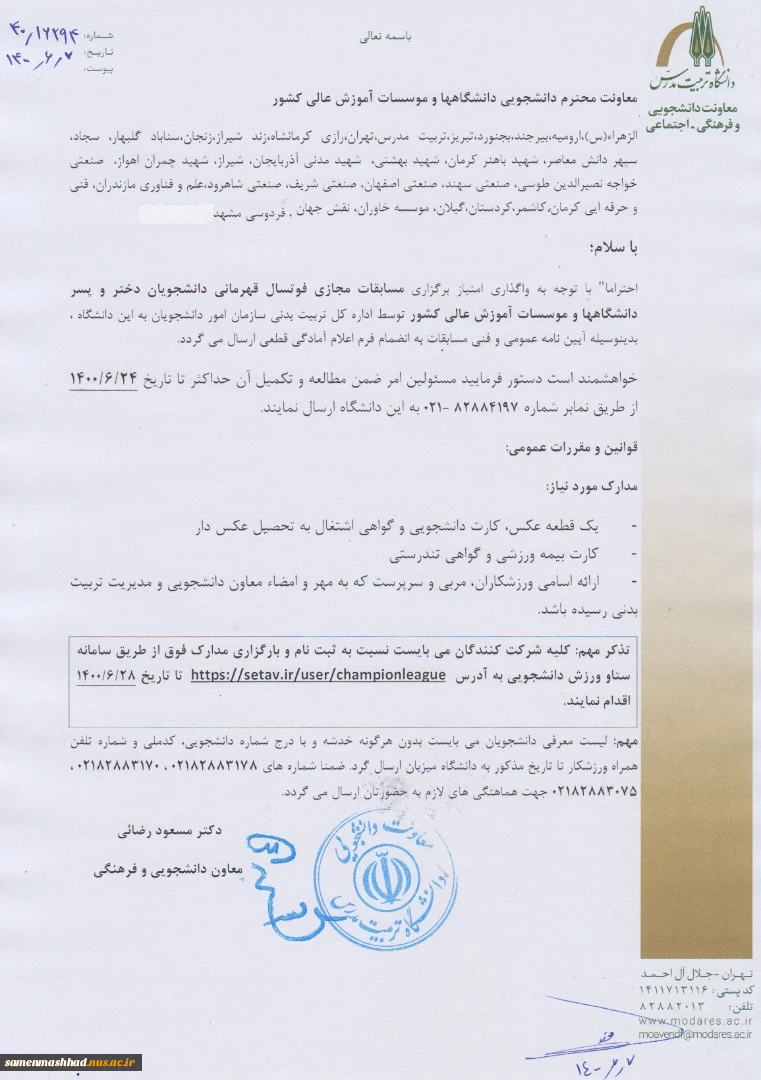 باسمه تعالی
شماره: ۴۰/۱۶۲۹۴
تاریخ: ۱۴۰۰/۶/۷
پیوست:
دانشگاه تربیت مدرس
معاونت دانشجویی
و فرهنگی - اجتماعی
معاونت محترم دانشجویی دانشگاهها و موسسات آموزش عالی کشور
الزهراء(س)،ارومیه،بیرجند،بجنورد،تبریز،تربیت مدرس،تهران،رازی کرمانشاه،زند شیراز،زنجان،سناباد گلبهار، سجاد،
سپهر دانش معاصر، شهید باهنر کرمان، شهید بهشتی، شهید مدنی آذربایجان، شیراز، شهید چمران اهواز، صنعتی
خواجه نصیرالدین طوسی، صنعتی سهند، صنعتی اصفهان، صنعتی شریف، صنعتی شاهرود،علم و فناوری مازندران، فنی
و حرفه ایی کرمان،کاشمر،کردستان،گیلان، موسسه خاوران، نقش جهان ، فردوسی مشهد
با سلام؛
احتراما" با توجه به واگذاری امتیاز برگزاری مسابقات مجازی فوتسال قهرمانی دانشجویان دختر و پسر
دانشگاهها و موسسات آموزش عالی کشور توسط اداره کل تربیت بدنی سازمان امور دانشجویان به این دانشگاه ،
بدینوسیله آیین نامه عمومی و فنی مسابقات به انضمام فرم اعلام آمادگی قطعی ارسال می گردد.
خواهشمند است دستور فرمایید مسئولین امر ضمن مطالعه و تکمیل آن حداکثر تا تاریخ ۱۴۰۰/۶/۲۴
از طریق نمابر شماره ۸۲۸۸۴۱۹۷ -۰۲۱ به این دانشگاه ارسال نمایند.
قوانین و مقررات عمومی:
مدارک مورد نیاز:
- یک قطعه عکس، کارت دانشجویی و گواهی اشتغال به تحصیل عکس دار
- کارت بیمه ورزشی و گواهی تندرستی
- ارائه اسامی ورزشکاران، مربی و سرپرست که به مهر و امضاء معاون دانشجویی و مدیریت تربیت
بدنی رسیده باشد.
تذکر مهم: کلیه شرکت کنندگان می بایست نسبت به ثبت نام و بارگزاری مدارک فوق از طریق سامانه
ستاو ورزش دانشجویی به آدرس https://setav.ir/user/championleague تا تاریخ ۱۴۰۰/۶/۲۸
اقدام نمایند.
مهم: لیست معرفی دانشجویان می بایست بدون هرگونه خدشه و با درج شماره دانشجویی، کدملی و شماره تلفن
همراه ورزشکار تا تاریخ مذکور به دانشگاه میزبان ارسال گرد. ضمنا شماره های ۰۲۱۸۲۸۸۳۱۷۸ ، ۰۲۱۸۲۸۸۳۱۷۰ ،
۰۲۱۸۲۸۸۳۰۷۵ جهت هماهنگی های لازم به حضورتان ارسال می گردد.
دکتر مسعود رضائی
معاون دانشجویی و فرهنگی
معاونت دانشجویی
دانشگاه تربیت مدرس
تهران -جلال آل احمد
کدپستی: ۱۴۱۱۷۱۳۱۱۶
تلفن: ۸۲۸۸۲۰۱۳
www.modares.ac.ir
@modares.ac.ir
۱۴۰۰/۶/۷
samenmashhad.nus.ac.ir